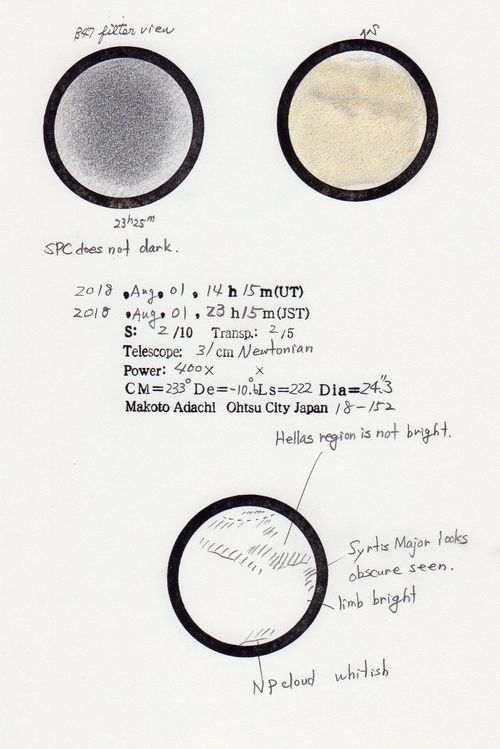 B47 filter view
23h25m
SPC does not dark.
2018, Aug, 01, 14 h 15 m(UT)
2018, Aug, 01, 23 h 15 m(JST)
S: 2 /10 Transp.: 2 /5
Telescope: 31 cm Newtonian
Power: 400× ×
CM=233° De=-10.6° Ls=222 Dia=24."3
Makoto Adachi Ohtsu City Japan 18-152
Hellas region is not bright.
Syrtis Major looks
obscure seen.
limb bright
NP cloud whitish